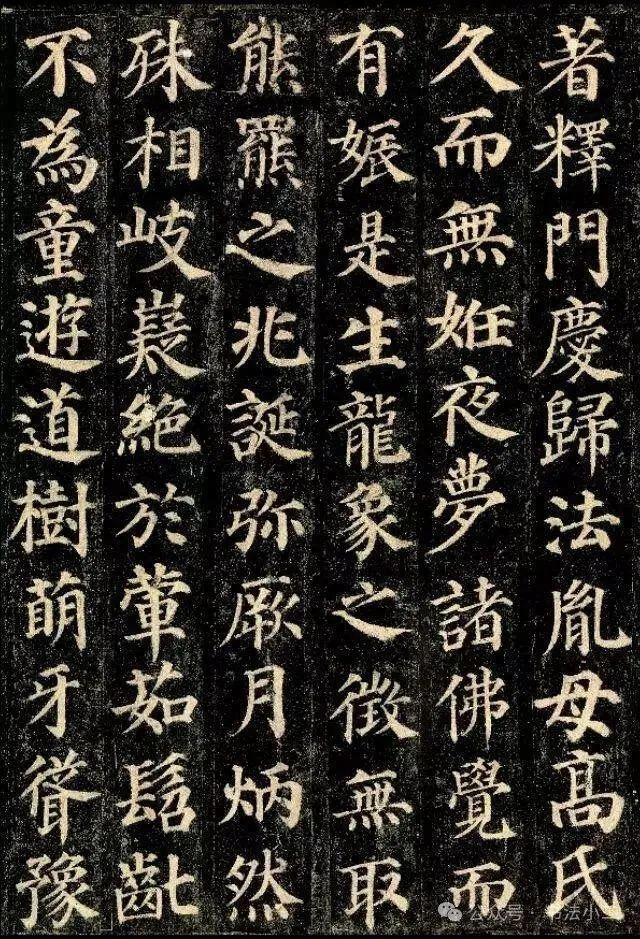 著釋門慶歸法胤母髙氏
久而無妊夜夢諸佛覺而
有娠是生龍象之徵無取
熊羆之兆誕弥厥月炳然
殊相岐嶷絶於葷茹髫齔
不為童遊道樹萌牙聳豫
公众号